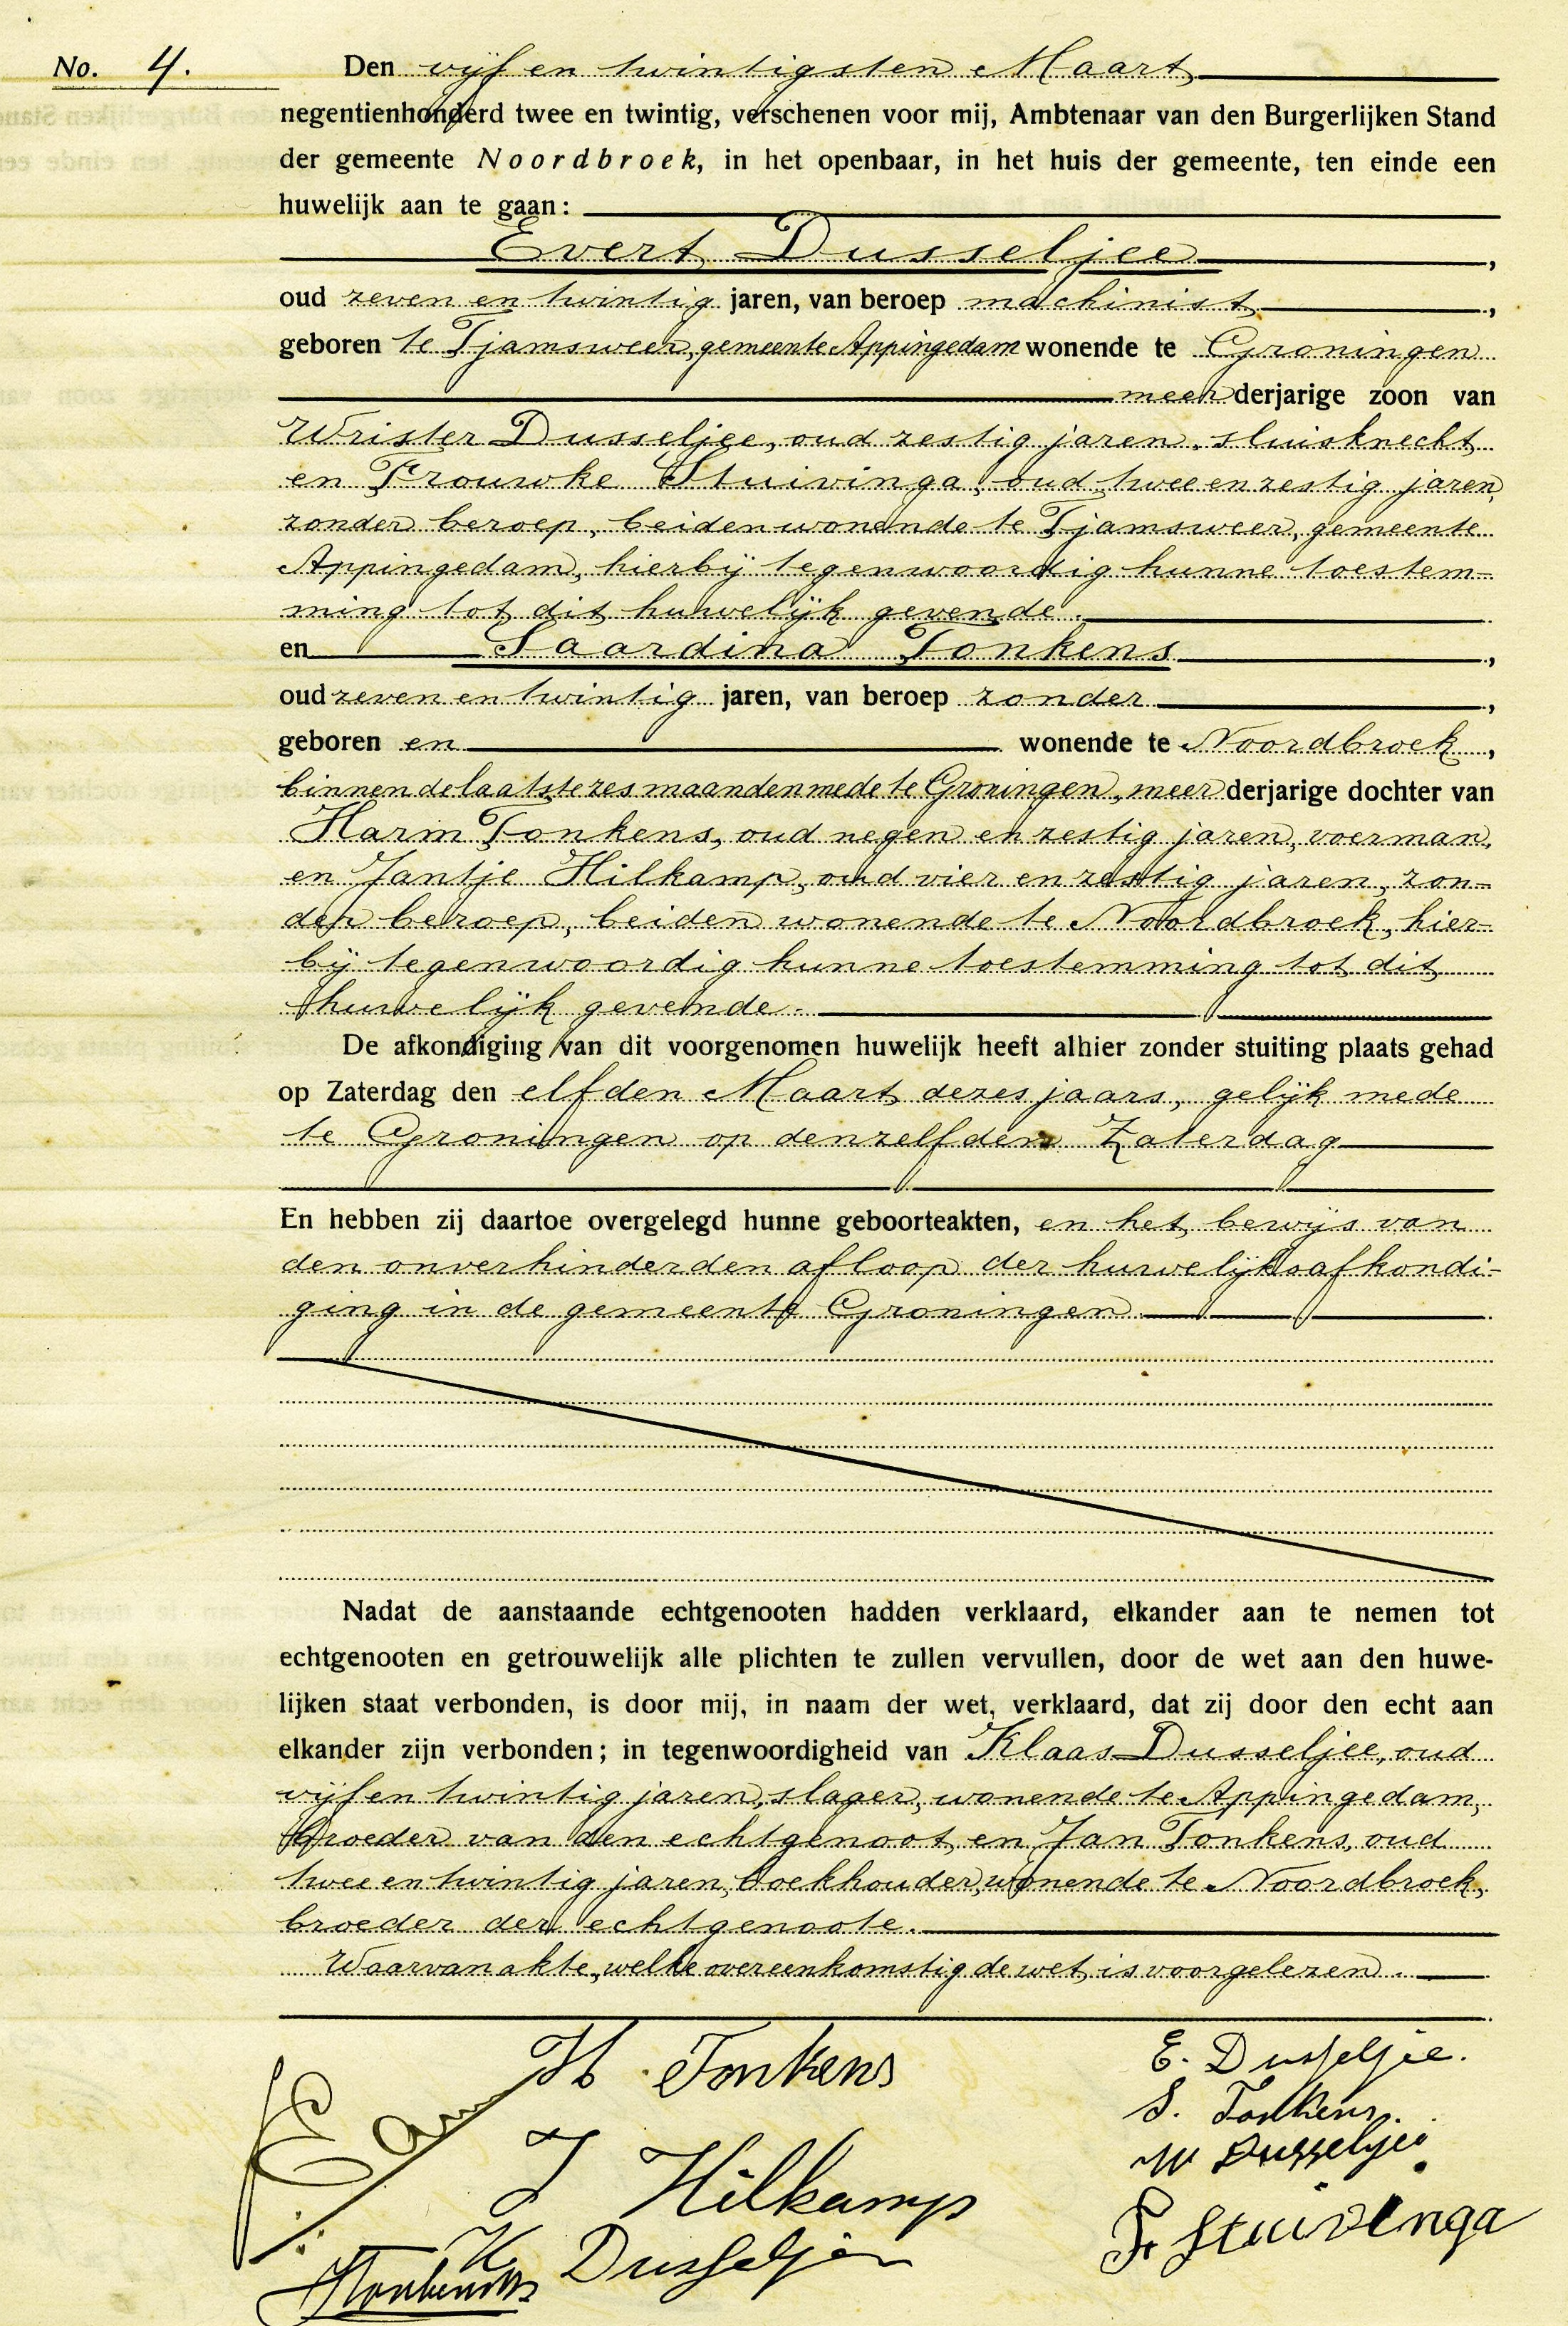 No. 4.
Den vijf en twintigsten Maart
negentienhonderd twee en twintig, verschenen voor mij, Ambtenaar van den Burgerlijken Stand
der gemeente Noordbroek, in het openbaar, in het huis der gemeente, ten einde een
huwelijk aan te gaan:
Evert Dusseljee,
oud zeven en twintig jaren, van beroep machinist,
geboren te Tjamsweer, gemeente Appingedam wonende te Groningen
meerderjarige zoon van
Wrister Dusseljee, oud zestig jaren, sluisknecht
en Frouwke Stuivinga, oud twee en zestig jaren,
zonder beroep, beiden wonende te Tjamsweer, gemeente
Appingedam, hierbij tegenwoordig hunne toestem-
ming tot dit huwelijk gevende.
en Saardina Tonkens,
oud zeven en twintig jaren, van beroep zonder,
geboren en wonende te Noordbroek,
binnen de laatste zes maanden mede te Groningen, meerderjarige dochter van
Harm Tonkens, oud negen en zestig jaren, voerman,
en Jantje Hilkamp, oud vier en zestig jaren, zon-
der beroep, beiden wonende te Noordbroek, hier-
bij tegenwoordig hunne toestemming tot dit
huwelijk gevende.
De afkondiging van dit voorgenomen huwelijk heeft alhier zonder stuiting plaats gehad
op Zaterdag den elfden Maart dezes jaars, gelijk mede
te Groningen op denzelfden Zaterdag
En hebben zij daartoe overgelegd hunne geboorteakten, en het bewijs van
den onverhinderden afloop der huwelijksafkondi-
ging in de gemeente Groningen.
Nadat de aanstaande echtgenooten hadden verklaard, elkander aan te nemen tot
echtgenooten en getrouwelijk alle plichten te zullen vervullen, door de wet aan den huwe-
lijken staat verbonden, is door mij, in naam der wet, verklaard, dat zij door den echt aan
elkander zijn verbonden; in tegenwoordigheid van Klaas Dusseljee, oud
vijf en twintig jaren, slager, wonende te Appingedam,
broeder van den echtgenoot, en Jan Tonkens, oud
twee en twintig jaren, boekhouder, wonende te Noordbroek,
broeder der echtgenoote.
Waarvan akte, welke overeenkomstig de wet is voorgelezen.
H. Tonkens
E. Dusseljee.
S. Tonkens.
W Dusseljee
J Hilkamp
F. Stuivinga
K Dusseljee